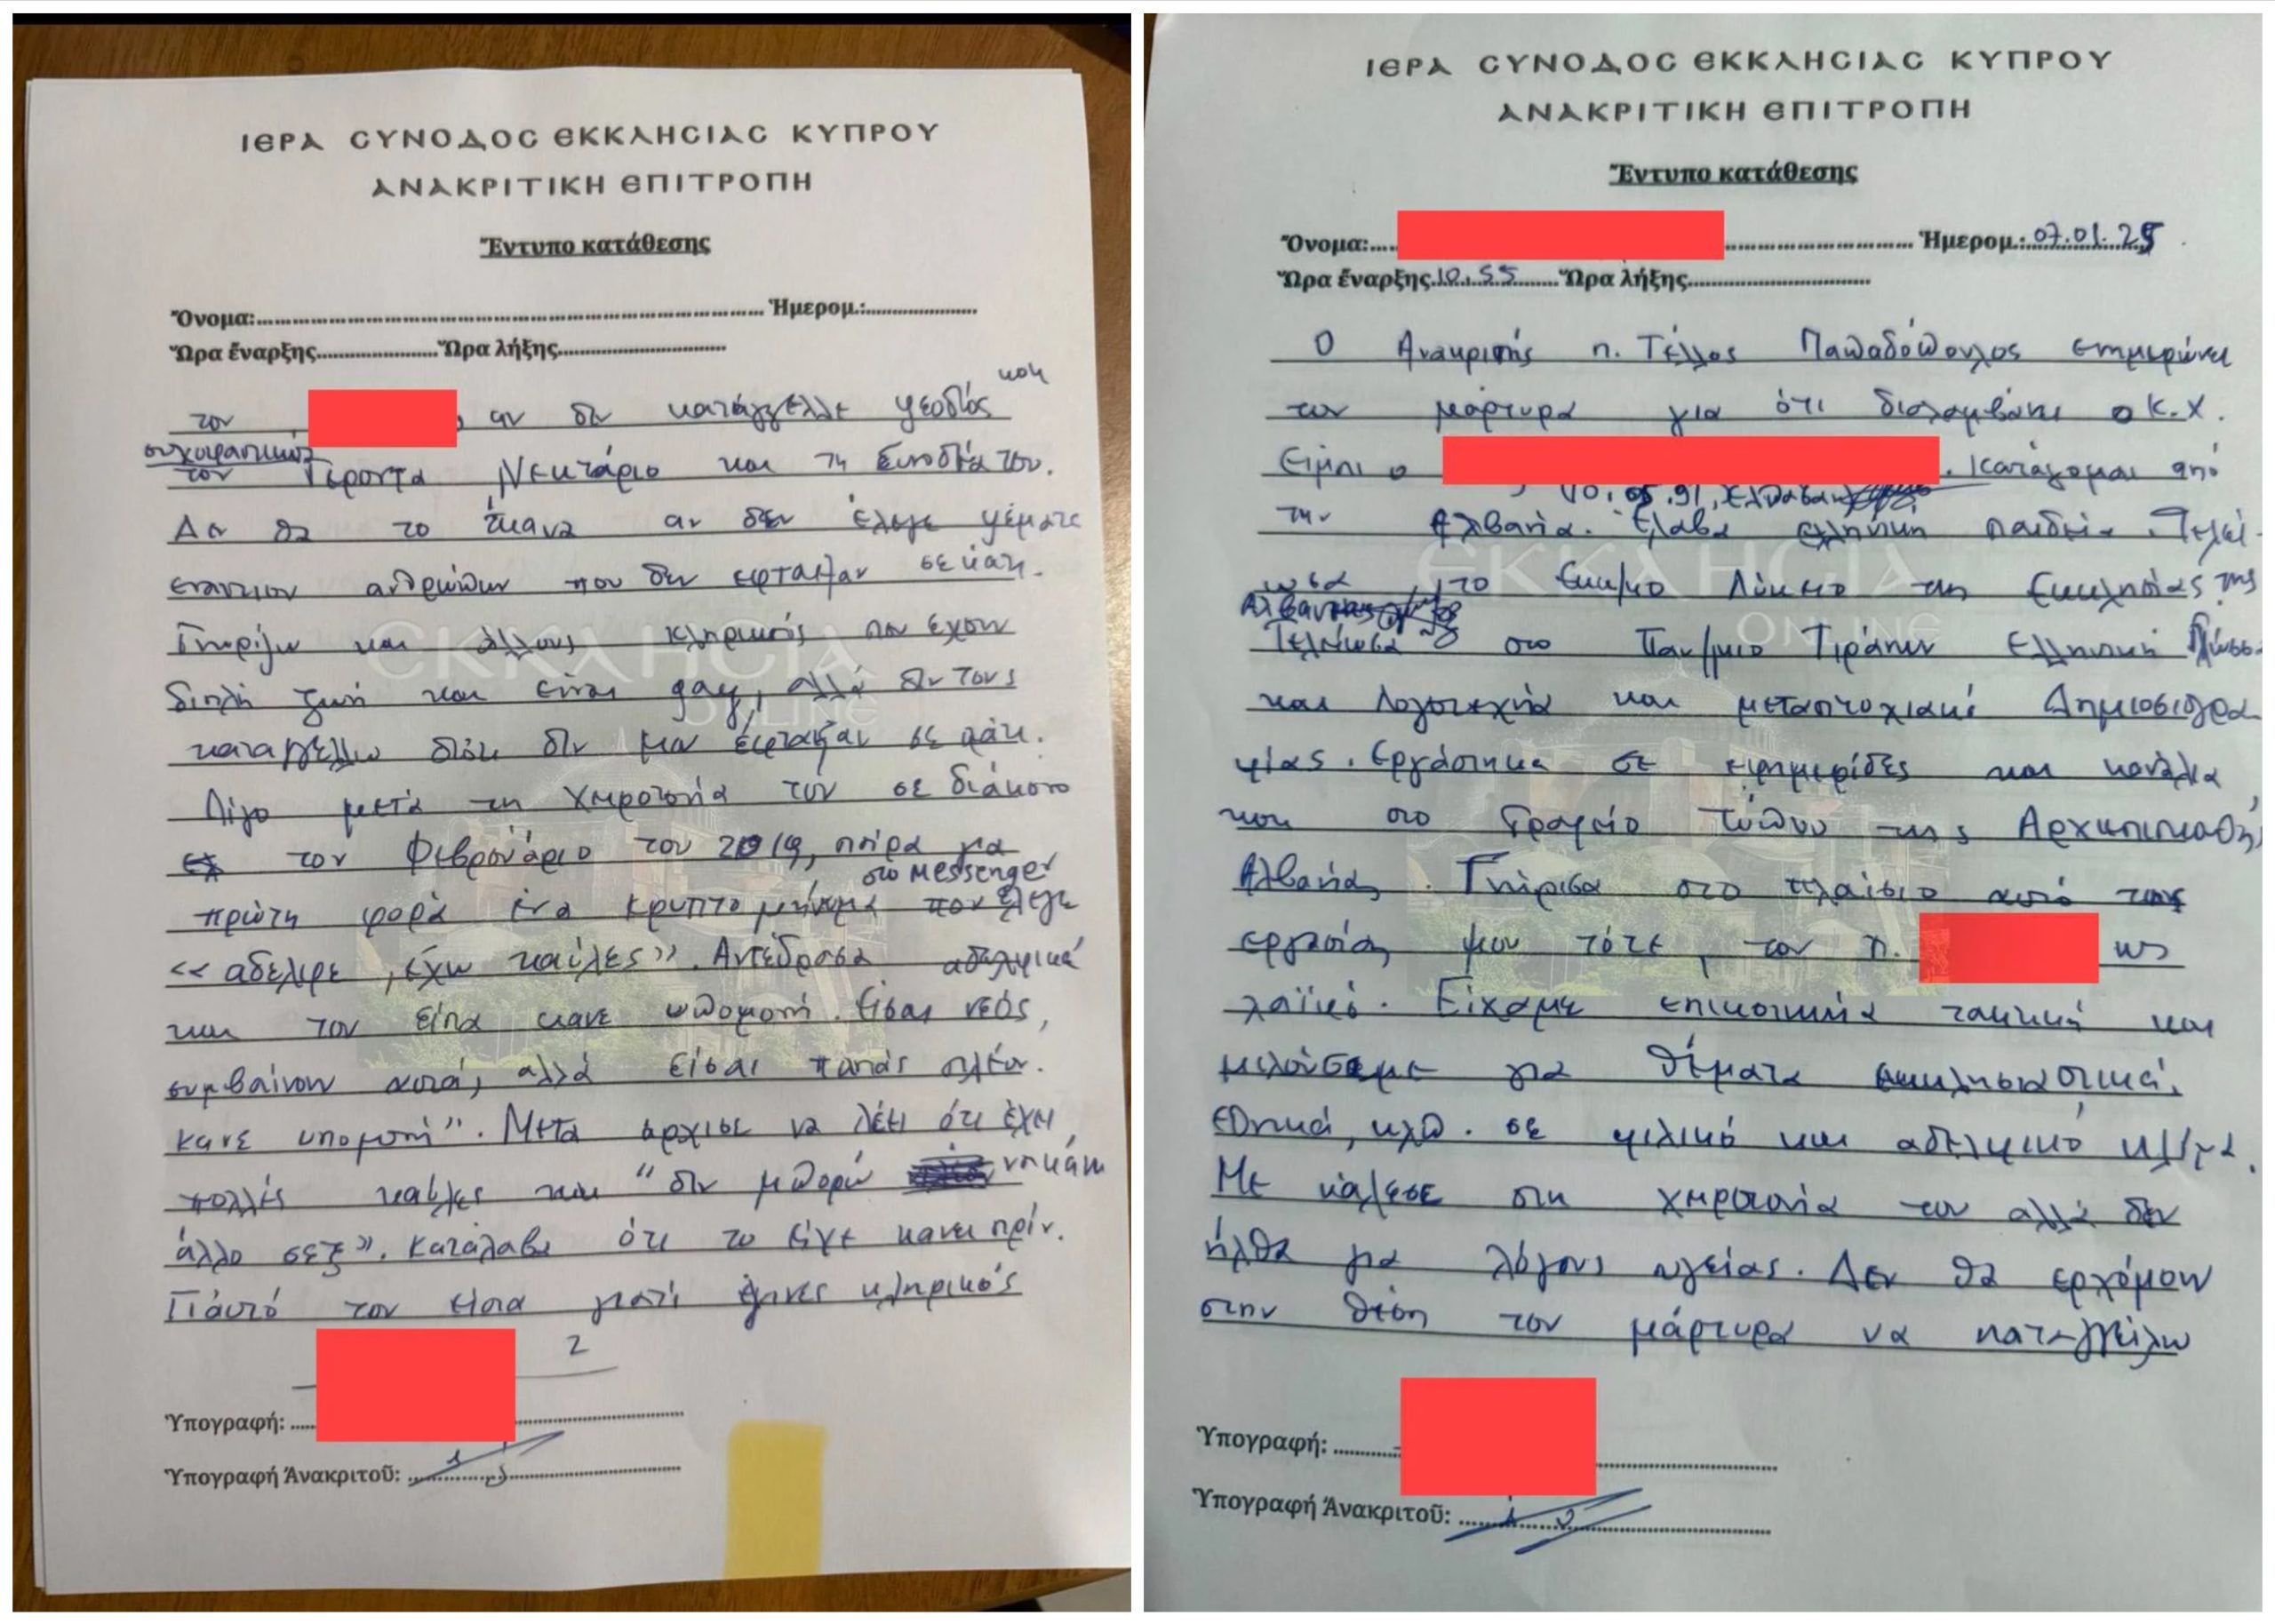 ΙΕΡΑ ΣΥΝΟΔΟΣ ΕΚΚΛΗΣΙΑΣ ΚΥΠΡΟΥ
ΑΝΑΚΡΙΤΙΚΗ ΕΠΙΤΡΟΠΗ
Ἔντυπο κατάθεσης
Ὄνομα:.... Ἡμερομ.:
Ὥρα ἔναρξης Ὥρα λήξης
τον , αν δεν κατάγγελλε ψευδώς και
συκοφαντικά
τον Γέροντα Νεκτάριο και τη Συνοδεία του.
Δεν θα το έκανα αν δεν έλεγε ψέματα
εναντίον ανθρώπων που δεν έφταιξαν σε κάτι.
Γνωρίζω και άλλους κληρικούς που έχουν
διπλή ζωή και είναι gay, αλλά δεν τους
καταγγέλλω διότι δεν μου έφταιξαν σε κάτι.
Λίγο μετά τη χειροτονία του σε διάκονο
τον Φεβρουάριο του 2019, πήρα για
στο Messenger
πρώτη φορά ένα κρυπτο μήνυμα που έλεγε
«αδελφέ, έχω καύλες». Αντέδρασα αδελφικά
και του είπα κανε υπομονή. Είσαι νέος,
συμβαίνουν αυτά, αλλά είσαι παπάς πλέον.
κανε υπομονή". Μετά άρχισε να λέει ότι έχει
πολλές καύλες και "δεν μπορώ να κάνω
άλλο σεξ». Κατάλαβα ότι το είχε κανει πρίν.
Γι'αυτό του είπα γιατί έγινες κληρικός
2
Ὑπογραφή:
Ὑπογραφή Ἀνακριτοῦ:
ΙΕΡΑ ΣΥΝΟΔΟΣ ΕΚΚΛΗΣΙΑΣ ΚΥΠΡΟΥ
ΑΝΑΚΡΙΤΙΚΗ ΕΠΙΤΡΟΠΗ
Ἔντυπο κατάθεσης
Ὄνομα:.... Ἡμερομ.: 07.01.25
Ὥρα ἔναρξης 10.55 Ὥρα λήξης
Ο Ανακριτής π. Τέλλος Παπαδόπουλος ενημερώνει
τον μάρτυρα για ότι διαλαμβάνει ο Κ.Χ.
Είμαι ο . Κατάγομαι από
10.05.91, Ελμπασάν
την Αλβανία. Έλαβα ελληνική παιδεία. Τελεί-
ωσα το Εκκ/κο Λύκειο της Εκκλησίας της
Αλβανίας
Τελείωσα στο Παν/μιο Τιράνων Ελληνική Γλώσσα
και Λογοτεχνία και μεταπτυχιακό Δημοσιογρα
φίας. Εργάστηκα σε εφημερίδες και κανάλια,
και στο Γραφείο τύπου της Αρχιεπισκοπής
Αλβανίας. Γνώρισα στο πλαίσιο αυτό της
εργασίας μου τότε, τον π. ως
λαϊκό. Είχαμε επικοινωνία τακτική και
μιλούσαμε για θέματα εκκλησιαστικά,
εθνικά, κλπ. σε φιλικό και αδελφικό κλίμα.
Με κάλεσε στη χειροτονία του αλλά δεν
ήλθα για λόγους υγείας. Δεν θα ερχόμουν
στην θέση του μάρτυρα να καταγγείλω
Ὑπογραφή:
Ὑπογραφή Ἀνακριτοῦ:
ΕΚΚΛΗΣΙΑ
ONLINE